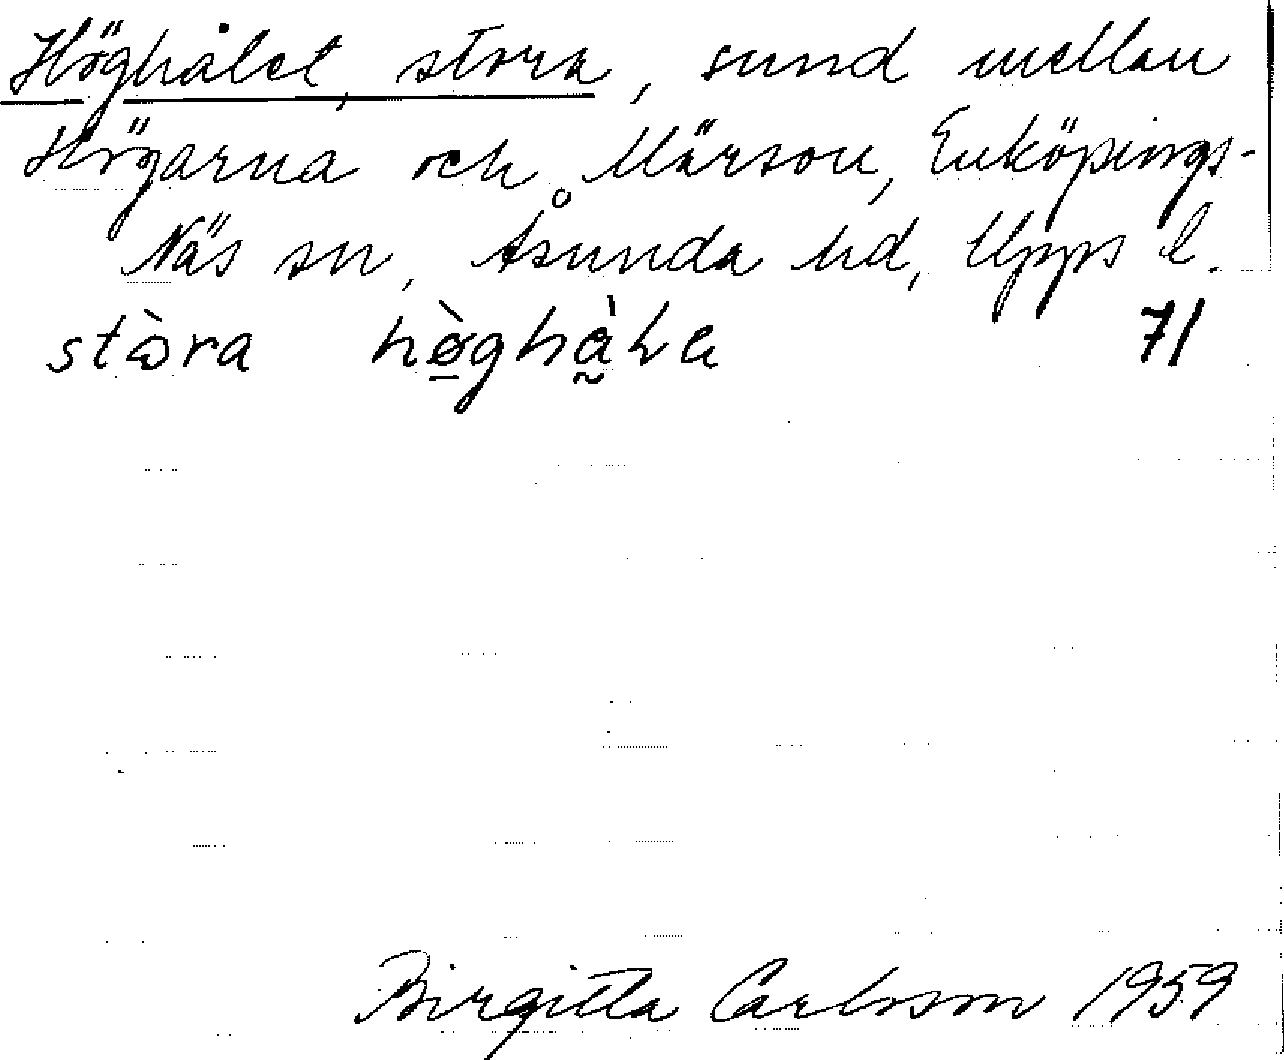 Höghålet, stora, sund mellan
Högarna och Märson, Enköpings-
Näs sn, Åsunda hd, Upps l.
stora
71
Birgitta Carlsson 1959